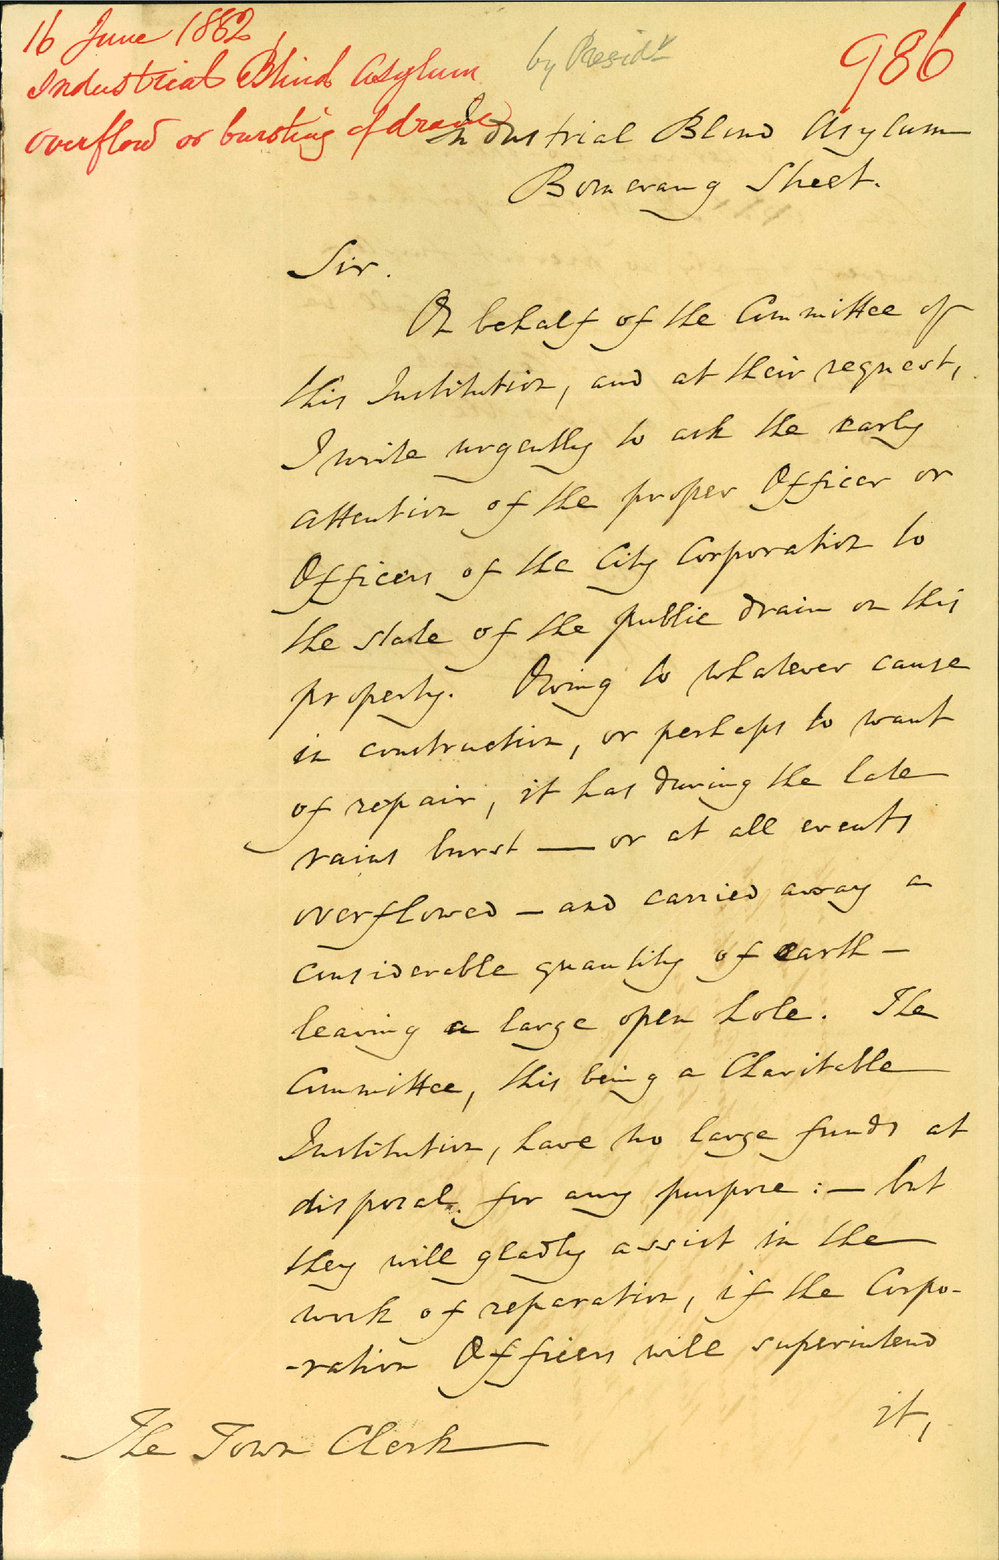 16 June 1882
Industrial Blind Asylum
overflow or bursting of drain
by Presidt
986
Industrial Blind Asylum
Bomerang Street.
Sir.
On behalf of the Committee of
this Institution, and at their request,
I write urgently to ask the early
attention of the proper Officer or
Officers of the City Corporation to
the state of the public drain on this
property. Owing to whatever cause
in construction, or perhaps to want
of repair, it has during the late
rains burst — or at all events
overflowed — and carried away a
considerable quantity of earth —
leaving a large open hole. The
Committee, this being a Charitable
Institution, have no large funds at
disposal for any purpose : — but
they will gladly assist in the
work of reparation, if the Corpo-
-ration Officers will superintend
it,
The Town Clerk